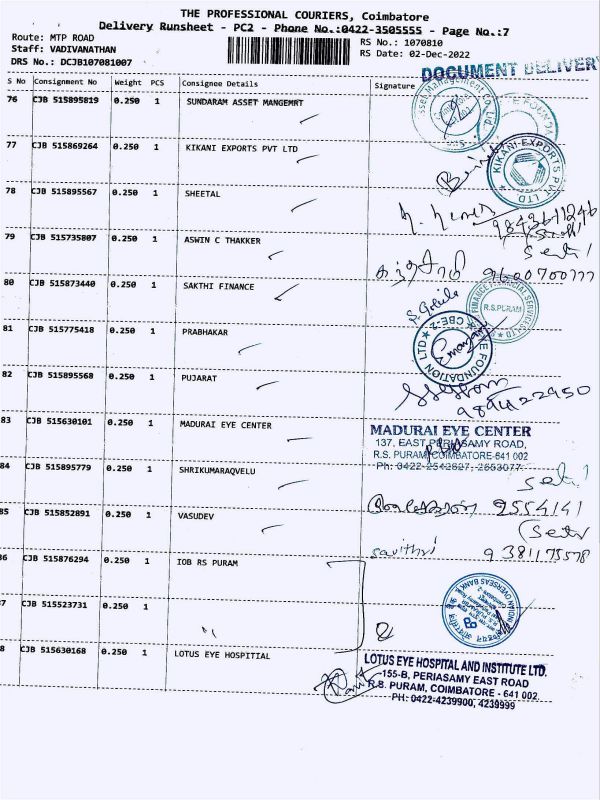 THE PROFESSIONAL COURIERS, Coimbatore
Delivery Runsheet - PC2 - Phone No.:0422-3505555 - Page No.:7
Route: MTP ROAD
RS No.: 1070810
Staff: VADIVANATHAN
RS Date: 02-Dec-2022
DRS No.: DCJB107081007
DOCUMENT DELIVERY
S No Consignment No Weight PCS Consignee Details Signature
76 CJB 515895819 0.250 1 SUNDARAM ASSET MANGEMRT
77 CJB 515869264 0.250 1 KIKANI EXPORTS PVT LTD
KIKANI EXPORTS PVT LTD
78 CJB 515895567 0.250 1 SHEETAL
9843611246
79 CJB 515735807 0.250 1 ASWIN C THAKKER
9600700777
80 CJB 515873440 0.250 1 SAKTHI FINANCE
R.S.PURAM
81 CJB 515775418 0.250 1 PRABHAKAR
EYE FOUNDATION LTD
CBE-2
82 CJB 515895568 0.250 1 PUJARAT
9894422950
83 CJB 515630101 0.250 1 MADURAI EYE CENTER
MADURAI EYE CENTER
137, EAST PERIASAMY ROAD,
R.S. PURAM, COIMBATORE-641 002
Ph: 0422-2542827, 2653077
84 CJB 515895779 0.250 1 SHRIKUMARAQVELU
2554141
85 CJB 515852891 0.250 1 VASUDEV
savithri 9381175578
86 CJB 515876294 0.250 1 IOB RS PURAM
INDIAN OVERSEAS BANK
87 CJB 515523731 0.250 1 "
88 CJB 515630168 0.250 1 LOTUS EYE HOSPITIAL
LOTUS EYE HOSPITAL AND INSTITUTE LTD.
155-B, PERIASAMY EAST ROAD
R.S. PURAM, COIMBATORE - 641 002.
PH: 0422-4239900, 4239999